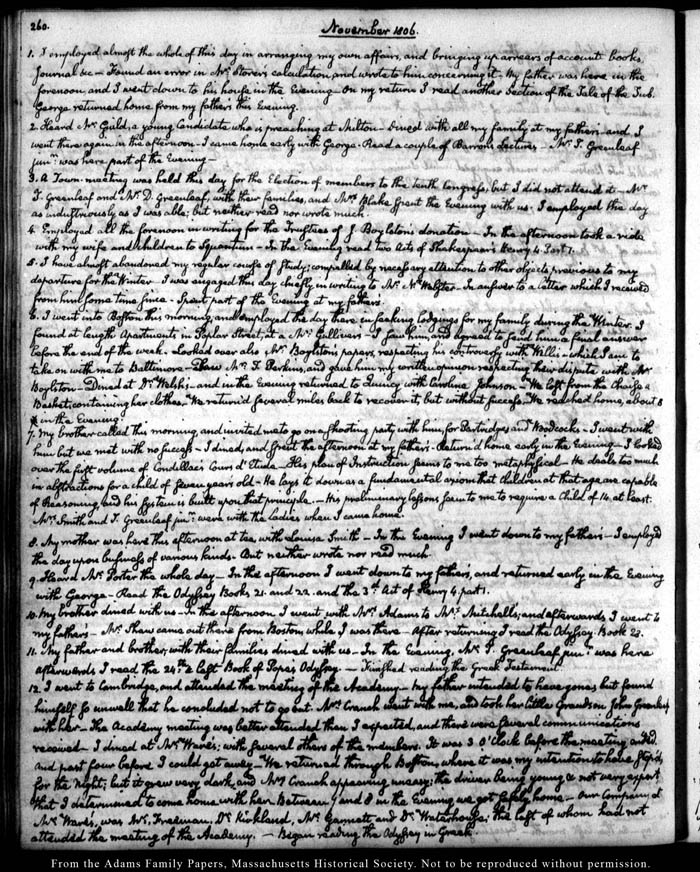 260.
November 1806.
1. I employed almost the whole of this day in arranging my own affairs, and bringing up arrears of account books,
Journal &c — Found an error in Mr Storer's calculation, and wrote to him concerning it. My father was here in the
forenoon, and I went down to his house in the Evening — On my return I read another Section of the Tale of the Tub.
George returned home from my father's this Evening.
2. Heard Mr Guild, a young Candidate who is preaching at Milton — Dined with all my family at my father's — and I
went there again in the afternoon — I came home early with George. Read a couple of Barron's Lectures — Mr T. Greenleaf
junr. was here part of the Evening —
3. A Town-meeting was held this day for the Election of members to the tenth Congress, but I did not attend it — Mr
T. Greenleaf and Mr D. Greenleaf, with their families, and Mrs Blake spent the Evening with us. I employed the day
as industriously as I was able; but neither read nor wrote much.
4. Employed all the forenoon in writing for the Trustees of J Boylston's donation — In the afternoon took a ride
with my wife and children to Squantum — In the Evening read two Acts of Shakespear's Henry 4. Part 1.
5. I have almost abandoned my regular course of Study; compelled by necessary attention to other objects previous to my
departure for the Winter — I was engaged this day chiefly in writing to Mr. N. Webster — In answer to a letter which I received
from him some time since — Spent part of the Evening at my father's.
6. I went into Boston this morning, and employed the day there in seeking lodgings for my family during the Winter. I
found at length Apartments in Poplar Street, at a Mr Gulliver's — I saw him, and agreed to send him a final answer
before the end of the week. Looked over also Mr Boylston's papers, respecting his controversy with Willis — which I am to
take on with me to Baltimore — Saw Mr T. Perkins, and gave him my written opinion respecting their dispute with Mr
Boylston — Dined at Dr Welsh's — and in the Evening returned to Quincy with Caroline Johnson — We lost from the Chaise a
Basket, containing her clothes. We return'd several miles back to recover it, but without success. We reached home, about 8
in the Evening.
7. My brother called this morning, and invited me to go on a shooting party with him, for Partridges and Woodcocks — I went with
him but we met with no success — I dined, and spent the afternoon at my father's — Return'd home early in the Evening — I looked
over the first volume of Condillac's Cours d'Etude — His plan of Instruction seems to me too metaphysical — He deals too much
in abstractions for a child of seven years old — He lays it down as a fundamental axiom that children at that age are capable
of Reasoning, and his System is built upon that principle. — His preliminary lessons seem to me to require a Child of 14 at least.
Mrs Smith and T. Greenleaf junr. were with the Ladies when I came home.
8. My mother was here this afternoon at tea, with Louisa Smith — In the Evening I went down to my father's — I employ'd
the day upon business of various kinds. But neither wrote nor read much.
9. Heard Mr Porter the whole day — In the afternoon I went down to my father's, and returned early in the Evening
with George — Read the Odyssey Books 21. and 22. and the 3d. Act of Henry 4. part 1.
10. My brother dined with us — In the afternoon I went with Mrs Adams to Mrs Mitchell's; and afterwards I went to
my father's — Mr Shaw came out there from Boston while I was there — After returning I read the Odyssey. Book 23.
11. My father and brother, with their families dined with us — In the Evening, Mr T. Greenleaf junr was here
afterwards I read the 24th & last Book of Pope's Odyssey. — Finished reading the Greek Testament.
12. I went to Cambridge, and attended the meeting of the Academy — My father intended to have gone, but found
himself so unwell that he concluded not to go but Mrs Cranch went with me, and took her little Grandson John Greenleaf
with her — The Academy meeting was better attended than I expected, and there were several communications
received — I dined at Mr Ware's; with several others of the members. It was 3 O'Clock before the meeting ended
and past four before I could get away — We returned through Boston, where it was my intention to have stop'd,
for the Night; but it grew very dark, and Mrs Cranch appearing uneasy; the driver being young & not very expert
that I determined to come home with her. Between 7 and 8 in the Evening we got safely home — Our Company, at
Mr Ware's, was Mr. Freeman, Dr Kirkland, Mr Gannett and Dr Waterhouse; the last of whom had not
attended the meeting of the Academy. — Began reading the Odyssey in Greek.
From the Adams Family Papers, Massachusetts Historical Society. Not to be reproduced without permission.